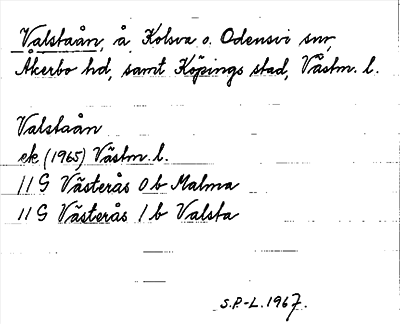 Valstaån, å Kolsva o. Odensvi snr,
Åkerbo hd, samt Köpings stad, Västm. l.
Valstaån
ek (1965) Västm. l.
11 G Västerås 0 b Malma
11 G Västerås 1 b Valsta
S.P-L. 1967.